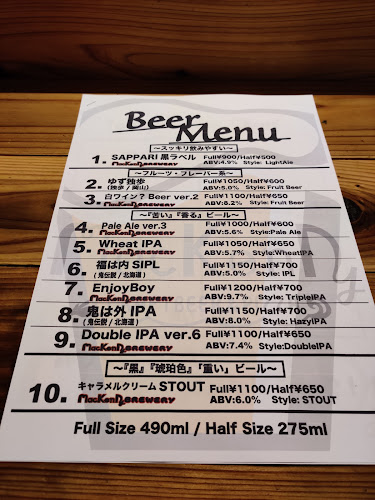 Beer
Menu
～スッキリ飲みやすい～
1. SAPPARI 黒ラベル Full¥900/Half¥500
MacKenD BREWERY ABV:4.9% Style: LightAle
～フルーツ・フレーバー系～
2. ゆず独歩 Full¥1050/Half¥600
(独歩 / 岡山) ABV:5.0% Style: Fruit Beer
3. 白ワイン? Beer ver.2 Full¥1100/Half¥650
MacKenD BREWERY ABV:8.2% Style: Fruit Beer
～『苦い』『香る』ビール～
4. Pale Ale ver.3 Full¥1000/Half¥600
MacKenD BREWERY ABV:5.6% Style:Pale Ale
5. Wheat IPA Full¥1050/Half¥650
MacKenD BREWERY ABV:5.7% Style:WheatIPA
6. 福は内 SIPL Full¥1150/Half¥700
(鬼伝説 / 北海道) ABV:5.0% Style: IPL
7. EnjoyBoy Full¥1200/Half¥700
MacKenD BREWERY ABV:9.7% Style: TripleIPA
8. 鬼は外 IPA Full¥1150/Half¥700
(鬼伝説 / 北海道) ABV:8.0% Style: HazyIPA
9. Double IPA ver.6 Full¥1100/Half¥650
MacKenD BREWERY ABV:7.4% Style:DoubleIPA
～『黒』『琥珀色』『重い』ビール～
10. キャラメルクリーム STOUT Full¥1100/Half¥650
MacKenD BREWERY ABV:6.0% Style: STOUT
Full Size 490ml / Half Size 275ml